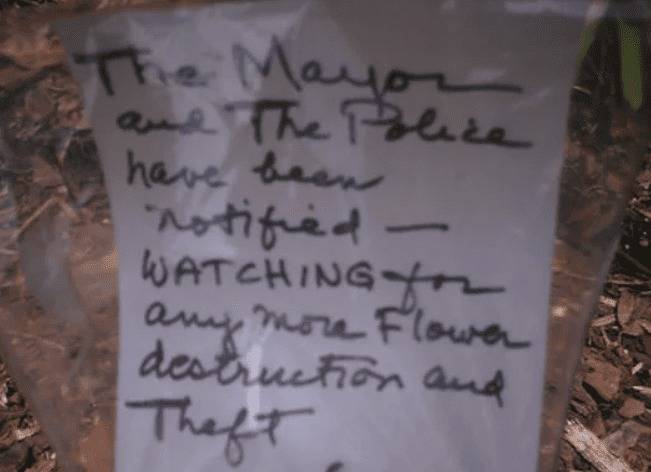 The Mayor
and The Police
have been
notified —
WATCHING for
any more Flower
destruction and
Theft